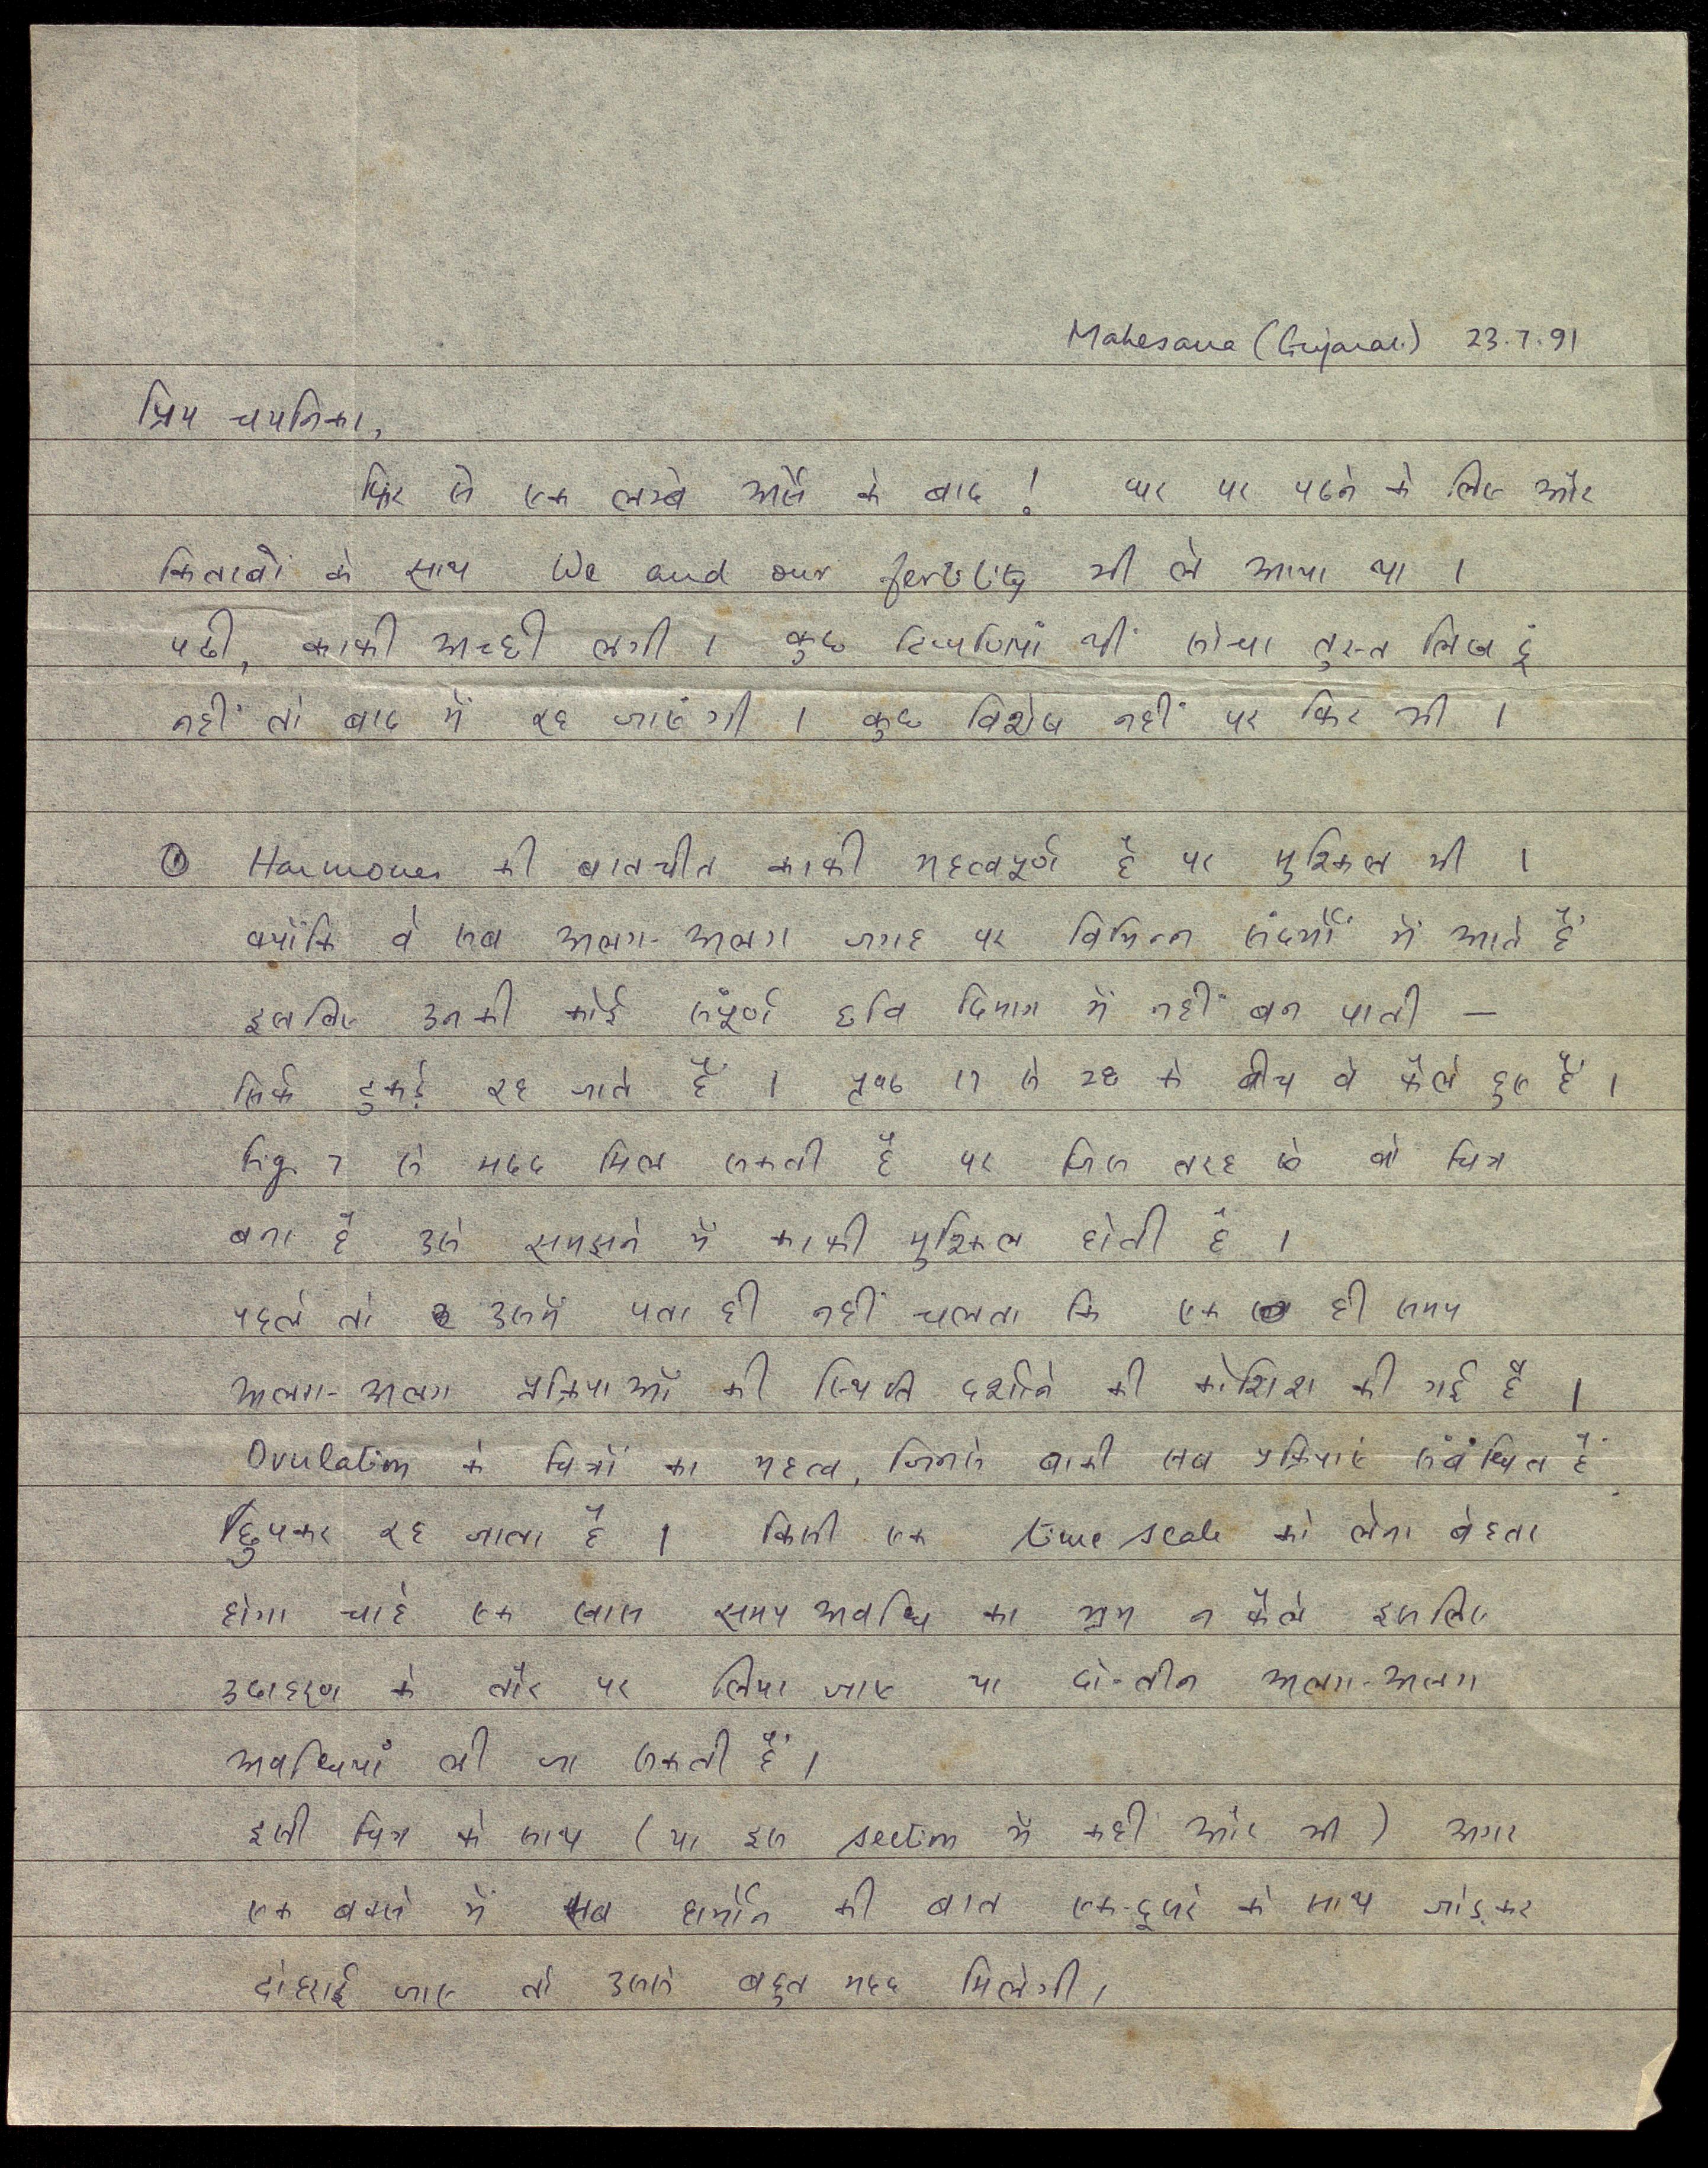 Mahesana (Gujarat) 23.7.91
प्रिय चयनिका,
फिर से एक लम्बे अर्से के बाद ! घर पर पढने के लिए और
किताबों के साथ We and our fertility भी ले आया था ।
पढी, काफी अच्छी लगी । कुछ टिप्पणियाँ थीं सोचा तुरन्त लिख दूं
नहीं तो बाद में रह जाएंगी । कुछ विशेष नहीं पर फिर भी ।
① Harmones की बातचीत काफी महत्वपूर्ण है पर मुश्किल भी ।
क्योंकि वे सब अलग-अलग जगह पर विभिन्न संदर्भों में आते हैं
इसलिए उनकी कोई संपूर्ण छवि दिमाग में नहीं बन पाती —
सिर्फ टुकड़े रह जाते हैं । पृष्ठ 17 से 28 के बीच वे फैले हुए हैं ।
Fig. 7 से मदद मिल सकती है पर जिस तरह से वो चित्र
बना है उसे समझने में काफी मुश्किल होती है ।
पहले तो उसमें पता ही नहीं चलता कि एक ही समय
अलग-अलग प्रक्रियाओं की स्थिति दर्शाने की कोशिश की गई है ।
Ovulation के चित्रों का महत्व, जिनसे बाकी सब प्रक्रियाएं संबंधित हैं
छुपकर रह जाता है । किसी एक time scale को लेना बेहतर
होगा चाहे एक खास समय अवधि का भ्रम न फैले इसलिए
उदाहरण के तौर पर लिया जाए या दो-तीन अलग-अलग
अवधियां ली जा सकती हैं ।
इसी चित्र के साथ (या इस section में कहीं और भी) अगर
एक बक्से में सब हार्मोन की बात एक-दूसरे के साथ जोड़कर
दोहराई जाए तो उससे बहुत मदद मिलेगी ।